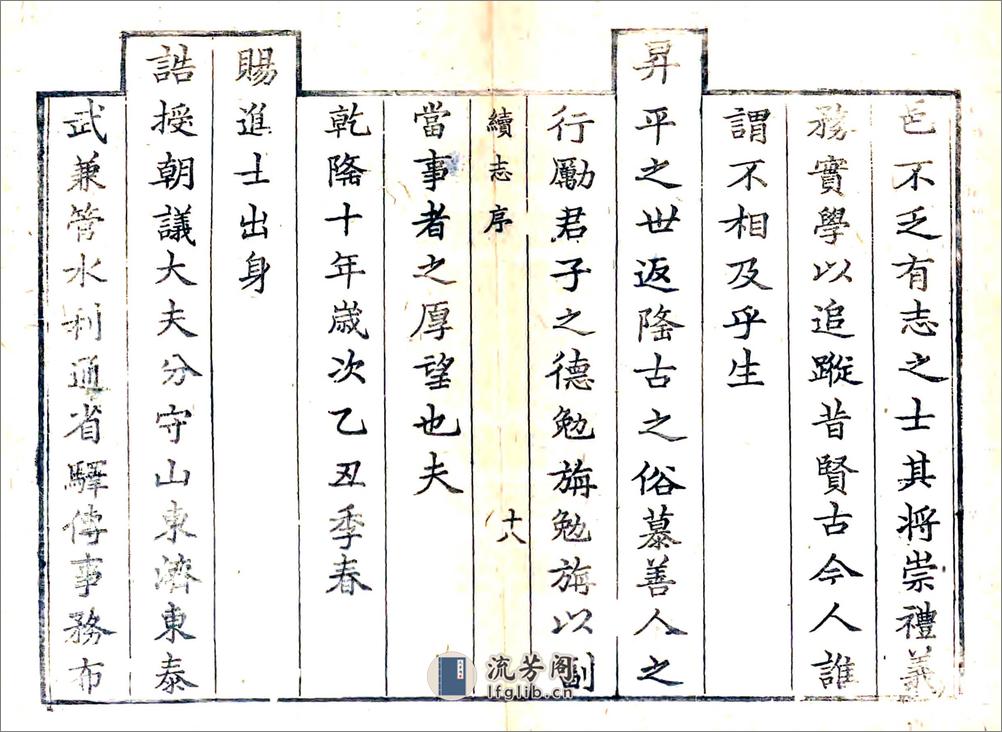 邑不乏有志之士其将崇禮義
務實學以追蹤昔賢古今人誰
謂不相及乎生
昇平之世返隆古之俗慕善人之
行勵君子之德勉旃勉旃以副
續志序 十八
當事者之厚望也夫
乾隆十年歲次乙丑季春
賜進士出身
誥授朝議大夫分守山東濟東泰
武兼管水利通省驛傳事務布
流芳阁
lfglib.cn